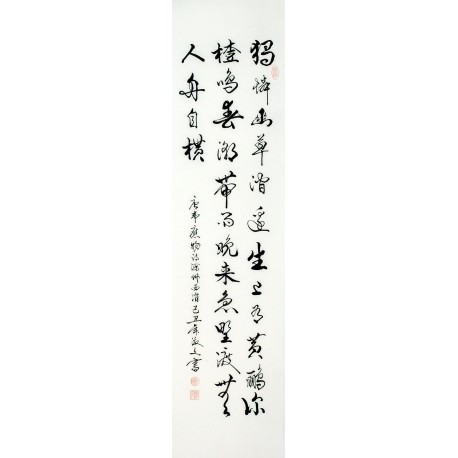 獨憐幽草澗邊生上有黃鸝深
樹鳴春潮帶雨晚来急野渡無
人舟自橫
唐韋應物詩滁州西澗己丑年書